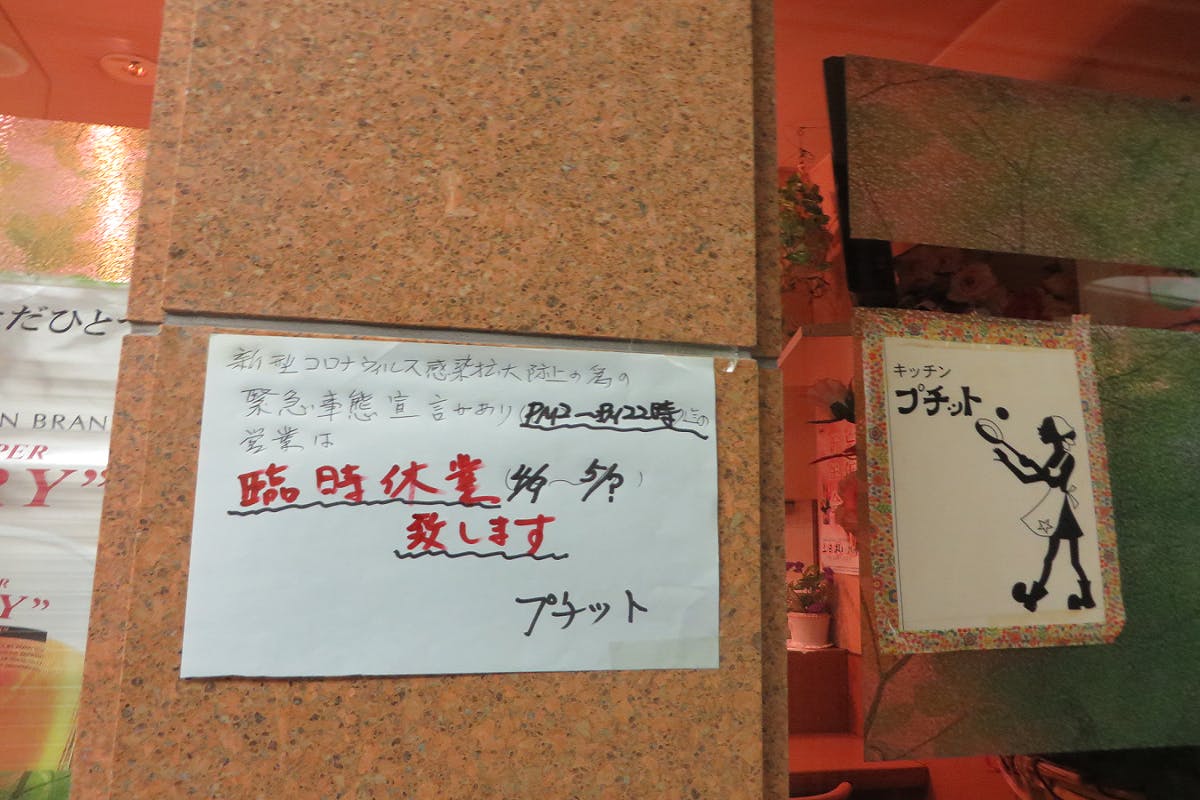 だひと
N BRAN
PER
RY”
Y”
新型コロナウィルス感染拡大防止の為の
緊急事態宣言があり(PM2〜PM22時の
営業は
臨時休業(4/9〜5/?)
致します
プチット
キッチン
プチット